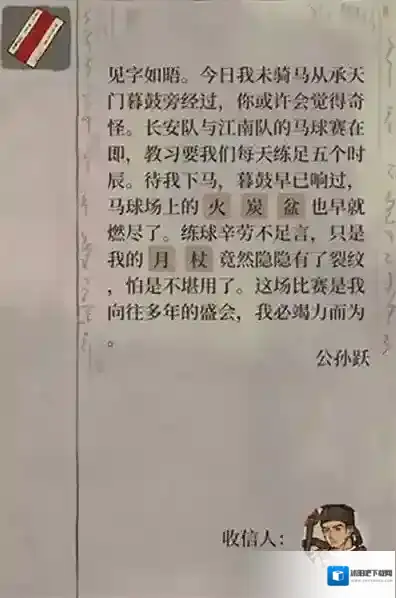 见字如晤。今日我未骑马从承天
门暮鼓旁经过，你或许会觉得奇
怪。长安队与江南队的马球赛在
即，教习要我们每天练足五个时
辰。待我下马，暮鼓早已响过，
马球场上的火炭盆也早就
燃尽了。练球辛劳不足言，只是
我的月杖竟然隐隐有了裂纹
，怕是不堪用了。这场比赛是我
向往多年的盛会，我必竭力而为
。
公孙跃
收信人：